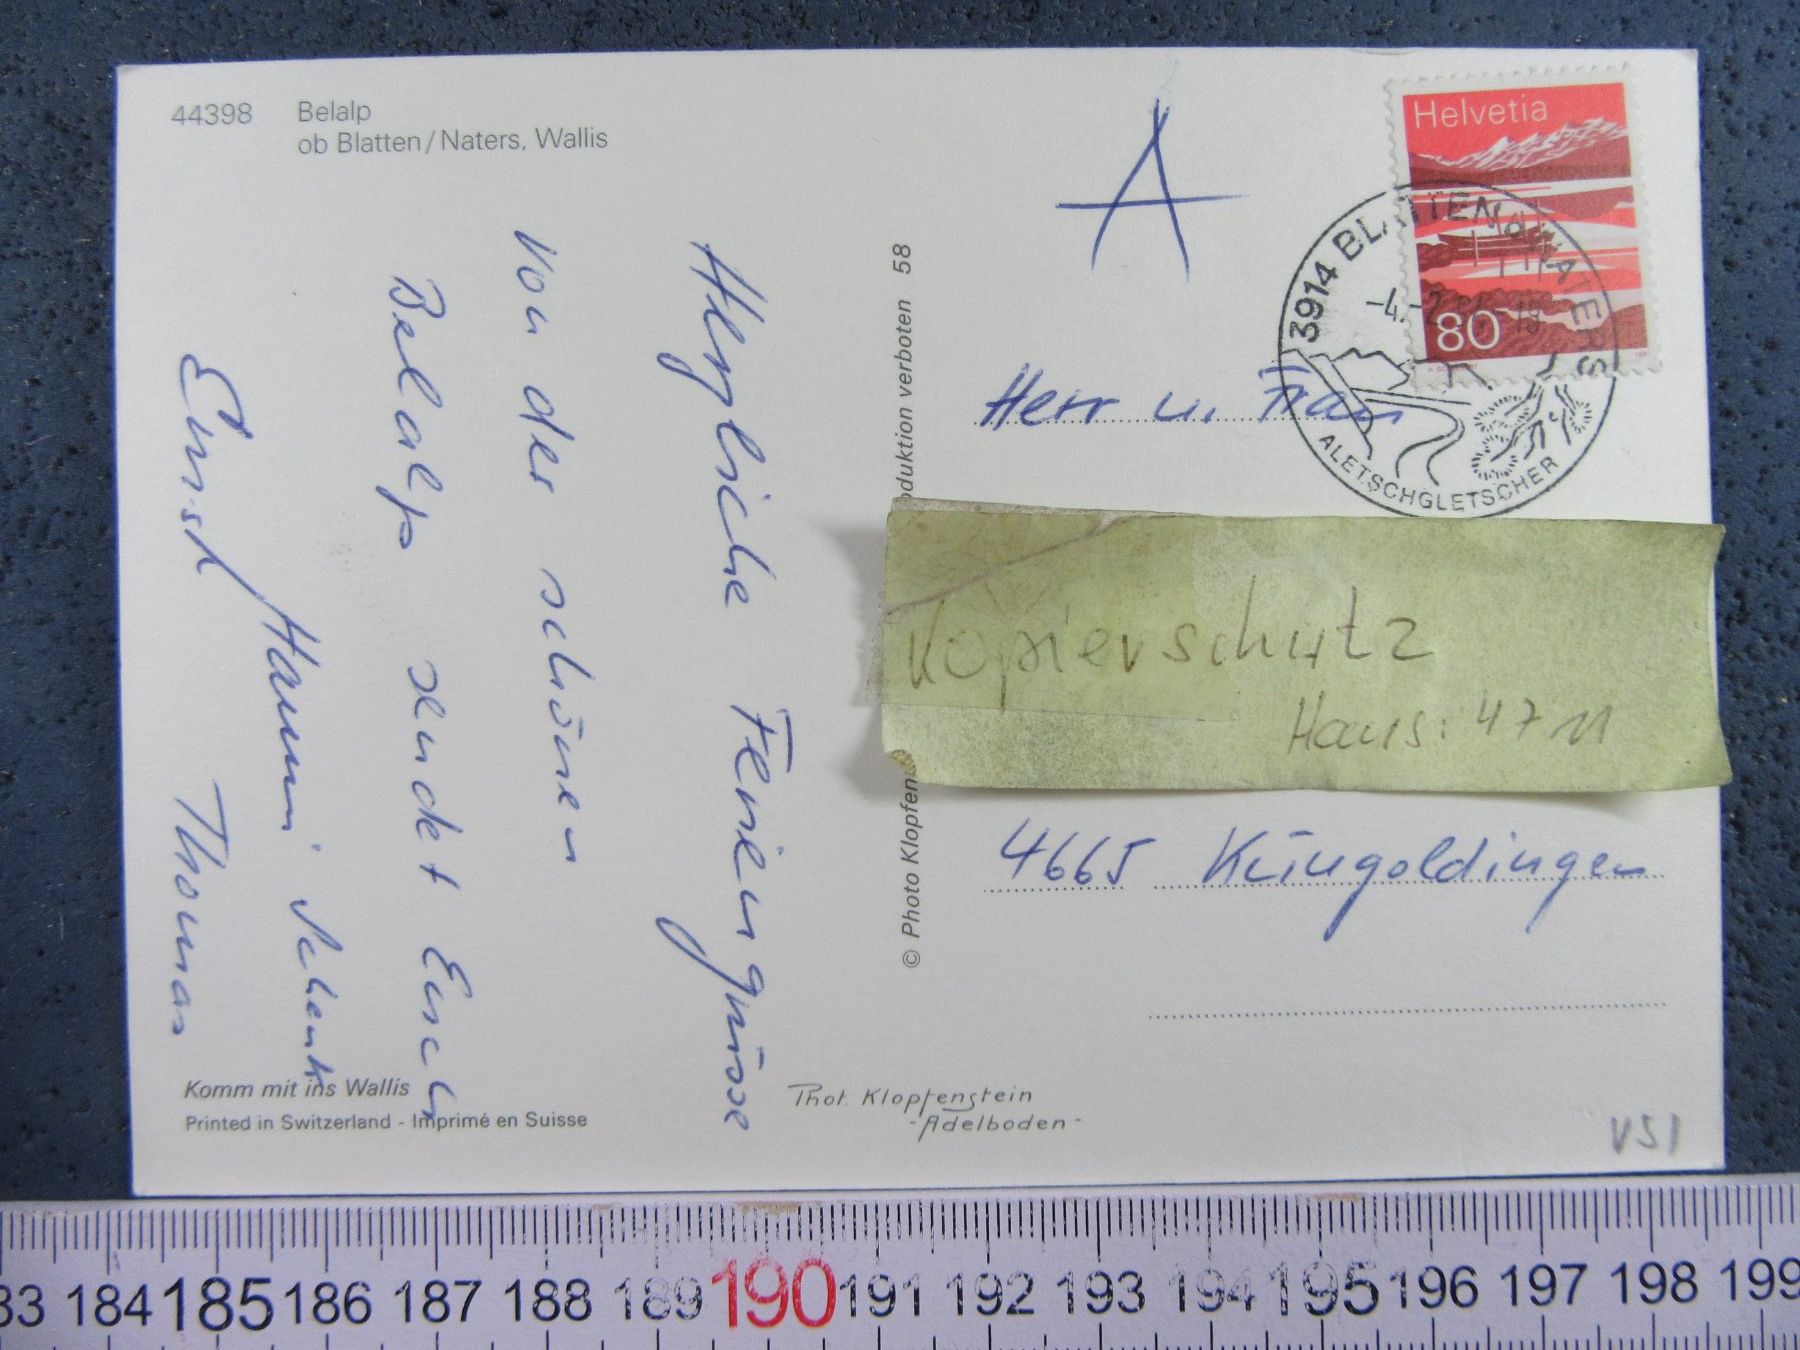 44398 Belalp
ob Blatten/Naters, Wallis
Herzliche Feriengrüsse
Von der schönen
Belalp sendet Euch
Hanni Schenk
Ernst Thomas
Komm mit ins Wallis
Printed in Switzerland - Imprimé en Suisse
© Photo Klopfen
oduktion verboten 58
Phot. Klopfenstein
- Adelboden -
A
Helvetia
80
3914 BLATTEN NATERS
-4.-2
ALETSCHGLETSCHER
Herr u. Frau
Kopierschutz
Haus: 4711
4665 Küngoldingen
VS1
183 184 185 186 187 188 189 190 191 192 193 194 195 196 197 198 199